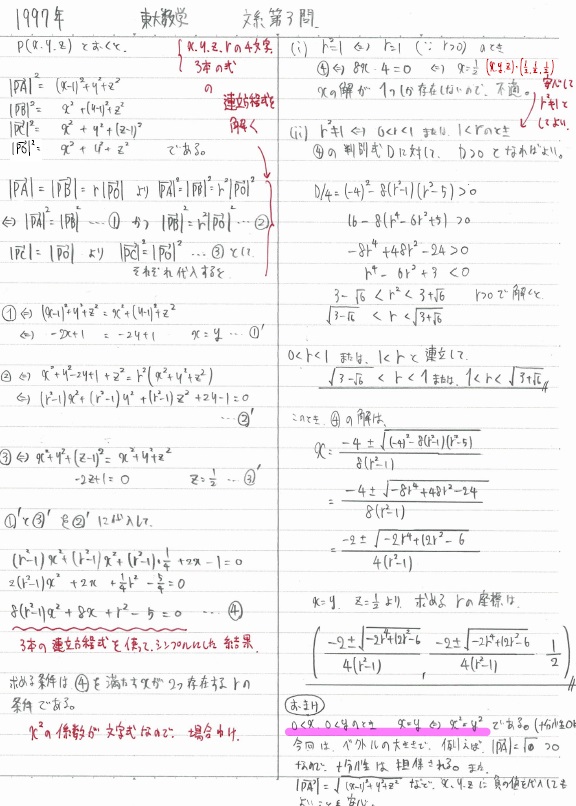 1997年 東大数学 文系第3問
P(x.y.z) とおくと、
|PA|² = (x-1)²+y²+z²
|PB|² = x²+(y-1)²+z²
|PC|² = x²+y²+(z-1)²
|PO|² = x²+y²+z² である。
x.y.z.rの4文字
3本の式
の
連立方程式を
解く
|PA| = |PB| = r|PO| より |PA|²=|PB|²=r²|PO|²
⇔ |PA|²=|PB|² …① かつ |PB|²=r²|PO|² …②
|PC| = |PO| より |PC|²=|PO|² …③ として
それぞれ代入すると
① ⇔ (x-1)²+y²+z² = x²+(y-1)²+z²
⇔ -2x+1 = -2y+1 x=y …①'
② ⇔ x²+y²-2y+1+z² = r²(x²+y²+z²)
⇔ (r²-1)x²+(r²-1)y²+(r²-1)z²+2y-1=0
…②'
③ ⇔ x²+y²+(z-1)² = x²+y²+z²
-2z+1=0 z=1/2 …③'
①'と③'を②'に代入して、
(r²-1)x²+(r²-1)x²+(r²-1)・1/4+2x-1=0
2(r²-1)x²+2x+1/4r²-5/4=0
8(r²-1)x²+8x+r²-5=0 …④
3本の連立方程式を使って、シンプルにした結果.
求める条件は④を満たすxが2つ存在するrの
条件である。
x²の係数が文字式なので、場合わけ.
(i) r²=1 ⇔ r=1 (∵ r>0) のとき
④ ⇔ 8x-4=0 ⇔ x=1/2 (x,y,z)=(1/2,1/2,1/2)
xの解が1つしか存在しないので、不適。
安心して
r²≠1と
してよい.
(ii) r²≠1 ⇔ 0<r<1 または、1<rのとき
④の判別式Dに対して、D>0となればよい。
D/4=(-4)²-8(r²-1)(r²-5)>0
16-8(r⁴-6r²+5)>0
-8r⁴+48r²-24>0
r⁴-6r²+3<0
3-√6<r²<3+√6 r>0で解くと
√3-√6<r<√3+√6
0<r<1または、1<rと連立して.
√3-√6<r<1または、1<r<√3+√6
このとき、④の解は、
x = -4±√(-4)²-8(r²-1)(r²-5) / 8(r²-1)
= -4±√-8r⁴+48r²-24 / 8(r²-1)
= -2±√-2r⁴+12r²-6 / 4(r²-1)
x=y. z=1/2より、求めるrの座標は、
(-2±√-2r⁴+12r²-6 / 4(r²-1), -2±√-2r⁴+12r²-6 / 4(r²-1), 1/2)
おまけ
0<x、0<yのとき x=y ⇔ x²=y² である。(十分性OK
今回は、ベクトルの大きさで、例えば |PA|= >0
なので、十分性は担保される。また
|PA|=√(x-1)²+y²+z² なので、x.y.zに負の値を代入しても
よいことも安心.